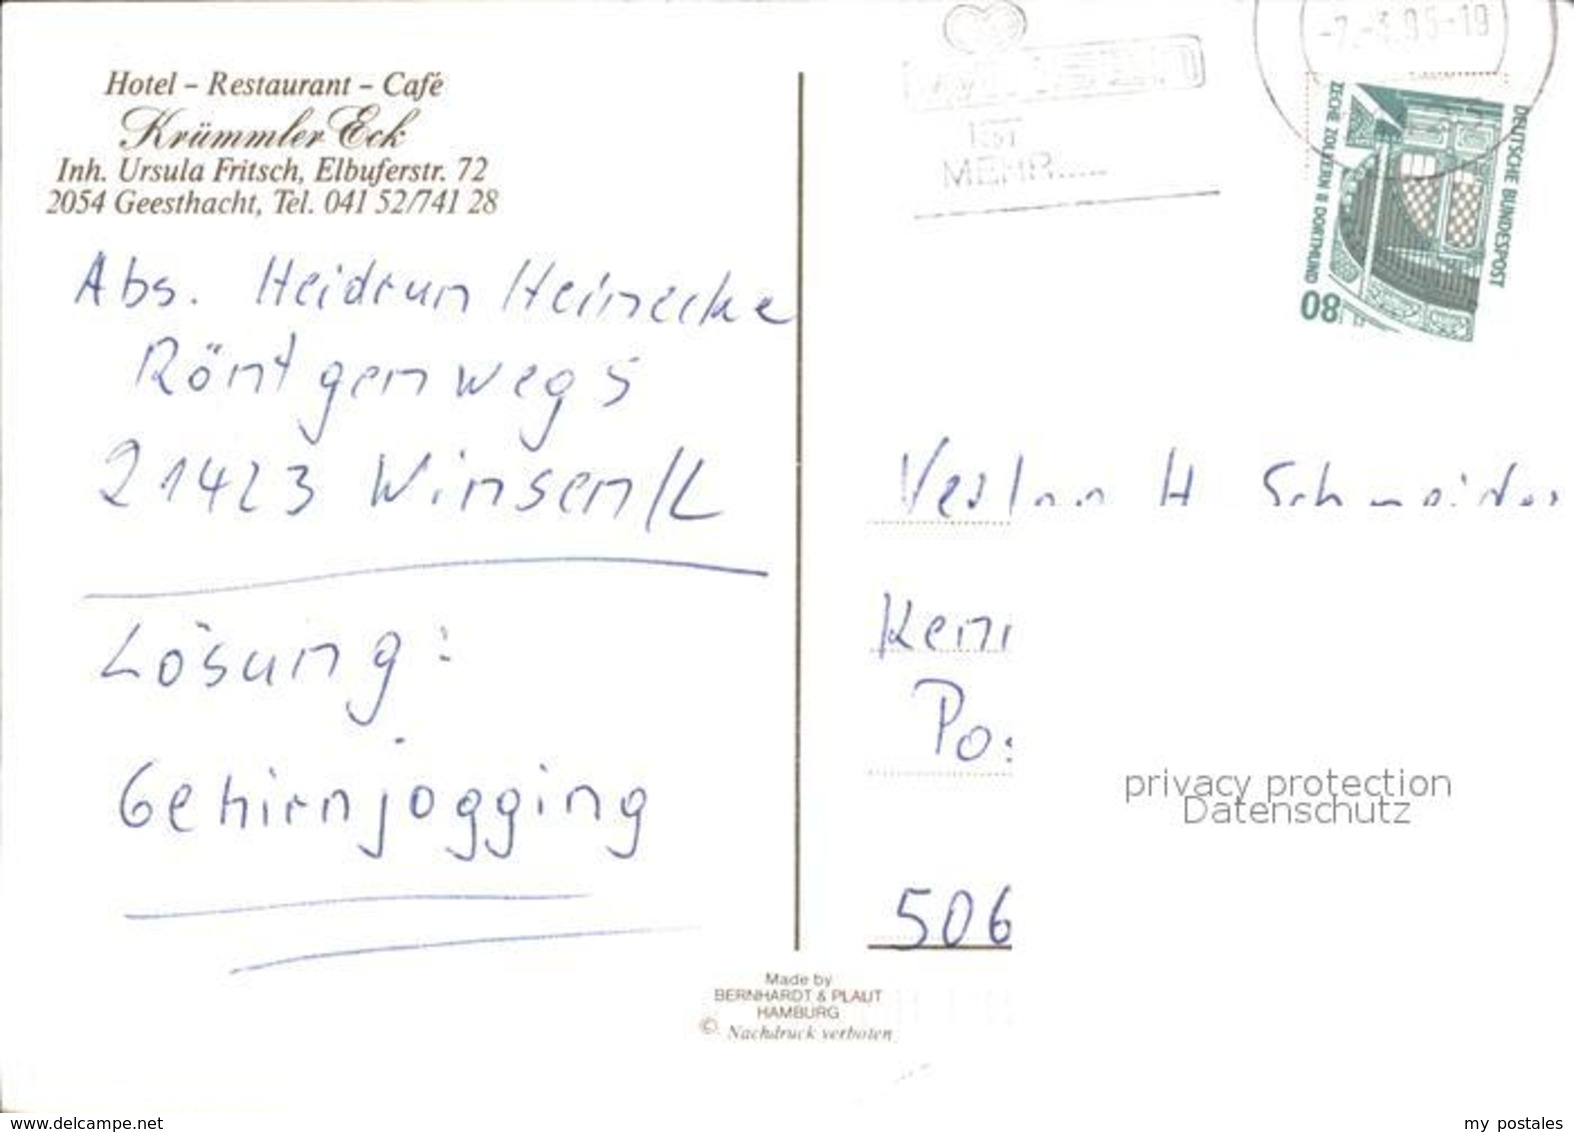 Hotel – Restaurant – Café
Krümmler Eck
Inh. Ursula Fritsch, Elbuferstr. 72
2054 Geesthacht, Tel. 041 52/741 28
Abs. Heidrun Heinecke
Röntgenweg 5
21423 Winsen/L
Lösung:
Gehirnjogging
Made by
BERNHARDT & PLAUT
HAMBURG
© Nachdruck verboten
IST
MEHR.....
DEUTSCHE BUNDESPOST
ZECHE ZOLLERN II DORTMUND
80
H Schneider
Kenn
Pos
506
privacy protection
Datenschutz
www.delcampe.net
my postales